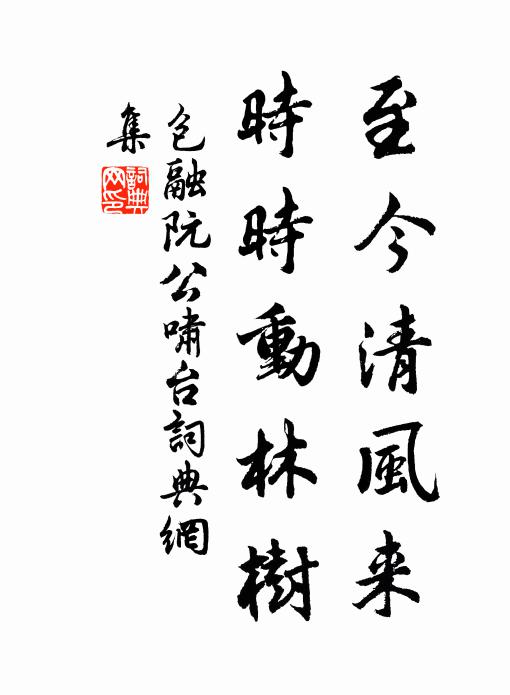 至今清風来
時時動林樹
包融阮公嘯台詞典網
集
詞典
网印